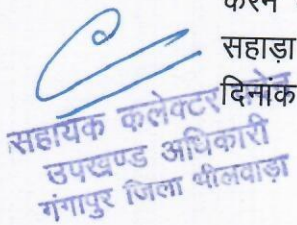 करने
सहाड़ा
दिनांक
सहायक कलेक्टर
उपखण्ड अधिकारी
गंगापुर जिला भीलवाड़ा